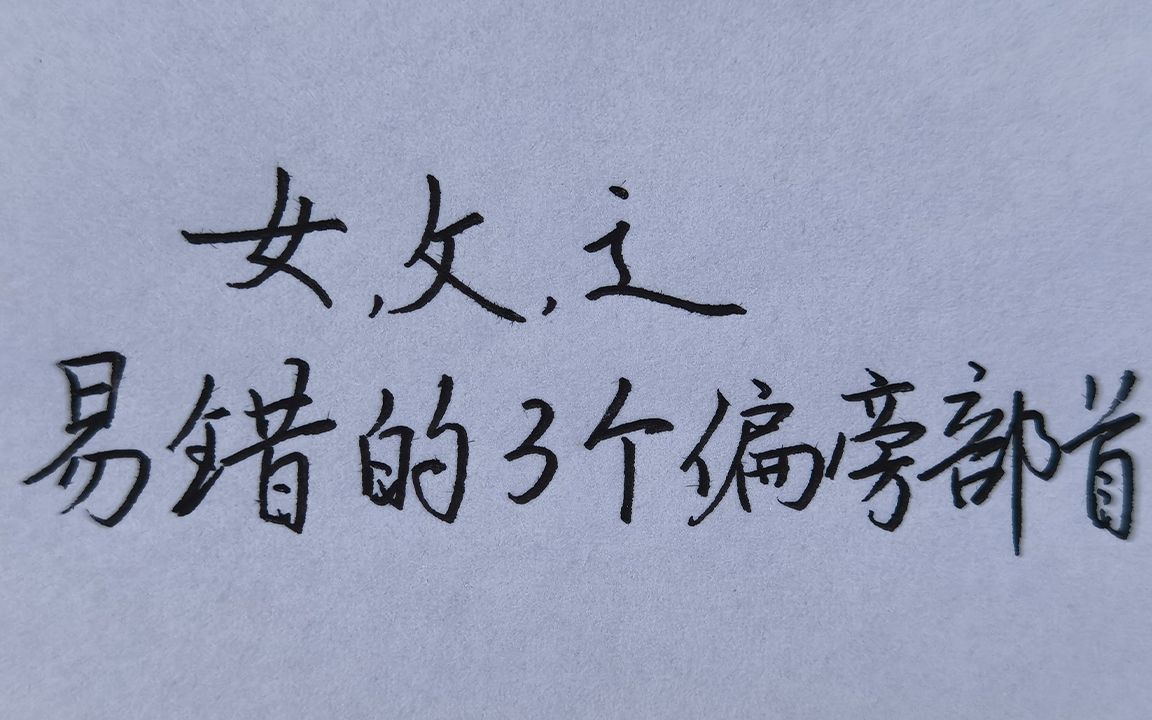 女,攵,辶
易错的3个偏旁部首